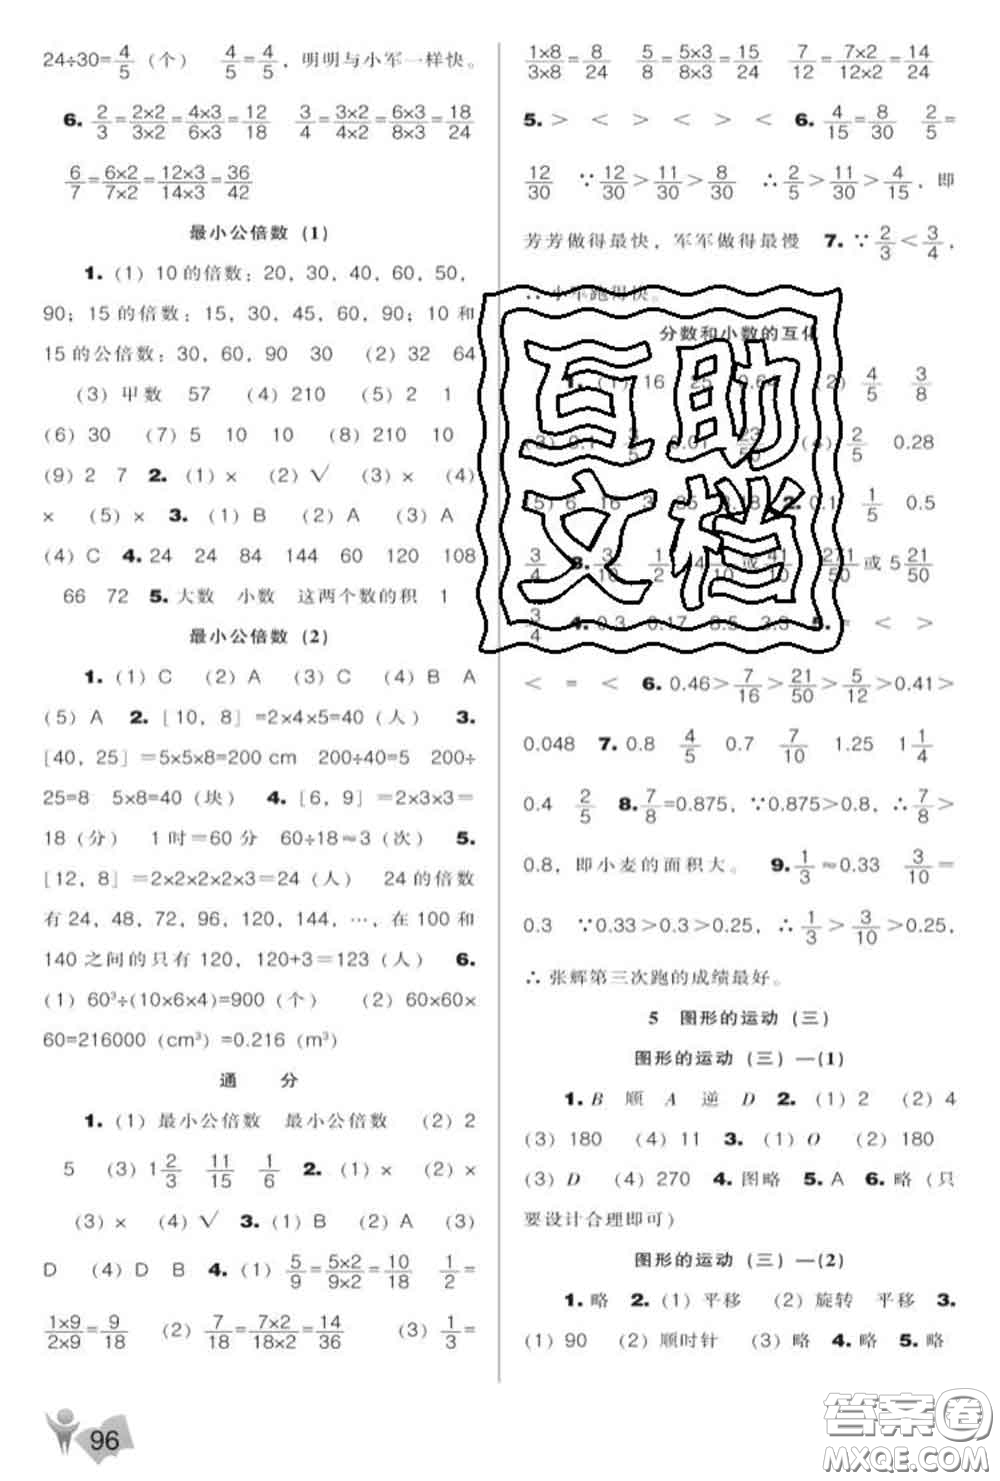 24÷30=4/5（个） 4/5=4/5，明明与小军一样快。
6. 2/3=2×2/3×2=4×3/6×3=12/18 3/4=3×2/4×2=6×3/8×3=18/24
6/7=6×2/7×2=12×3/14×3=36/42
最小公倍数（1）
1.（1）10的倍数：20，30，40，60，50，
90；15的倍数：15，30，45，60，90；10和
15的公倍数：30，60，90 30 （2）32 64
（3）甲数 57 （4）210 （5）2 1
（6）30 （7）5 10 10 （8）210 10
（9）2 7 2.（1）× （2）√ （3）× （4）
× （5）× 3.（1）B （2）A （3）A
（4）C 4. 24 24 84 144 60 120 108
66 72 5. 大数 小数 这两个数的积 1
最小公倍数（2）
1.（1）C （2）A （3）C （4）B A
（5）A 2.［10，8］=2×4×5=40（人） 3.
［40，25］=5×5×8=200 cm 200÷40=5 200÷
25=8 5×8=40（块） 4.［6，9］=2×3×3=
18（分） 1时=60分 60÷18≈3（次） 5.
［12，8］=2×2×2×2×3=24（人） 24的倍数
有24，48，72，96，120，144，…，在100和
140之间的只有120，120+3=123（人） 6.
（1）60³÷(10×6×4)=900（个） （2）60×60×
60=216000（cm³）=0.216（m³）
通 分
1.（1）最小公倍数 最小公倍数 （2）2
5 （3）1 2/3 11/15 1/6 2.（1）× （2）×
（3）× （4）√ 3.（1）B （2）A （3）
D （4）D B 4.（1）5/9=5×2/9×2=10/18 1/2=
1×9/2×9=9/18 （2）7/18=7×2/18×2=14/36 （3）1/3=
1×8/3×8=8/24 5/8=5×3/8×3=15/24 7/12=7×2/12×2=14/24
5. > < > < > < 6. 4/15=8/30 2/5=
12/30 ∵12/30>11/30>8/30 ∴2/5>11/30>4/15，即
芳芳做得最快，军军做得最慢 7. ∵2/3<3/4，
∴小军跑得快。
分数和小数的互化
1.（1）16 25 0.64 （2）4/5 3/8
（3）0.1 0.01 （4）2/5 0.28
（5） 2. 0.1 1/5 0.5
3/4 3. 或 271/50或5 21/50
3/4 4. 0.3 0.17 3.3 5. = < >
< = < 6. 0.46>7/16>21/50>5/12>0.41>
0.048 7. 0.8 4/5 0.7 7/10 1.25 1 1/4
0.4 2/5 8. 7/8=0.875，∵0.875>0.8，∴7/8>
0.8，即小麦的面积大。 9. 1/3≈0.33 3/10=
0.3 ∵0.33>0.3>0.25，∴1/3>3/10>0.25，
∴张辉第三次跑的成绩最好。
5 图形的运动（三）
图形的运动（三）—（1）
1. B 顺 A 逆 D 2.（1）2 （2）4
（3）180 （4）11 3.（1）O （2）180
（3）D （4）270 4. 图略 5. A 6. 略（只
要设计合理即可）
图形的运动（三）—（2）
1. 略 2.（1）平移 （2）旋转 平移 3.
（1）90 （2）顺时针 （3）略 4. 略 5. 略
互助
文档
96
答案圈
MXQE.COM